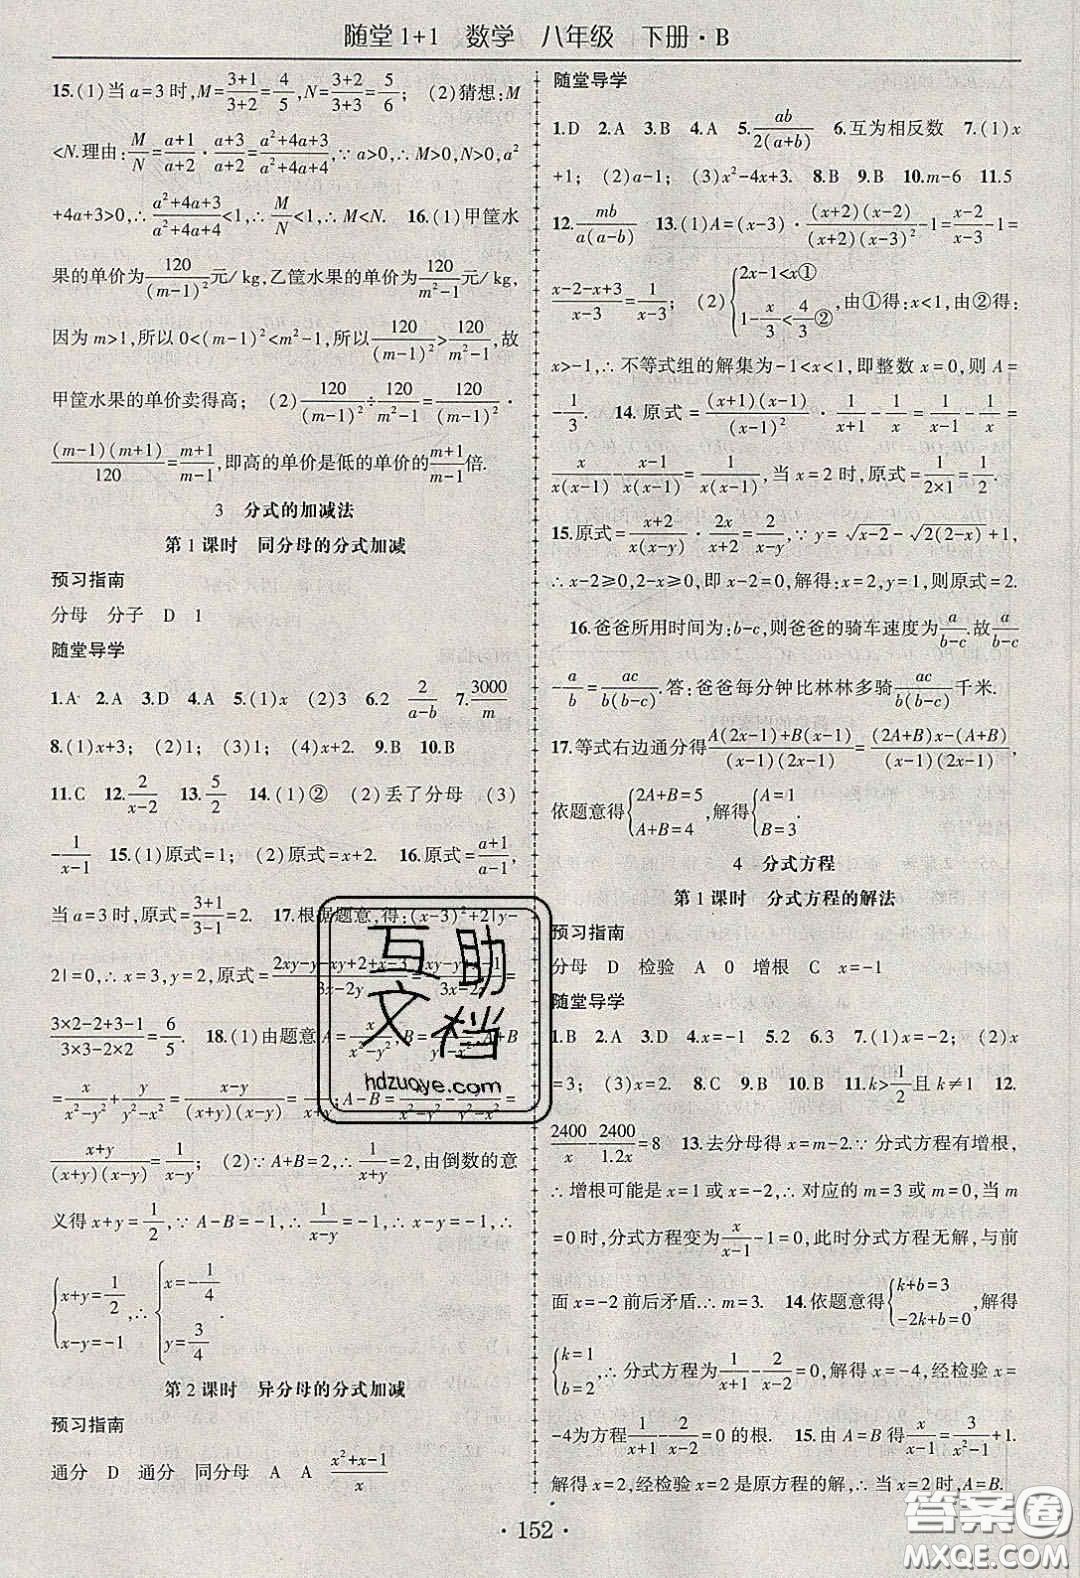 随堂1+1 数学 八年级 下册·B
15.(1)当a=3时,M=(3+1)/(3+2)=4/5,N=(3+2)/(3+3)=5/6; (2)猜想:M
<N.理由:M/N=(a+1)/(a+2)·(a+3)/(a+2)=(a²+4a+3)/(a²+4a+4),∵a>0,∴M>0,N>0,a²
+4a+3>0,∴(a²+4a+3)/(a²+4a+4)<1,∴M/N<1,∴M<N. 16.(1)甲筐水
果的单价为120/(m-1)²元/kg,乙筐水果的单价为120/(m²-1)元/kg,
因为m>1,所以0<(m-1)²<m²-1,所以120/(m-1)²>120/(m²-1),故
甲筐水果的单价卖得高; (2)120/(m-1)²÷120/(m²-1)=120/(m-1)²·
(m-1)(m+1)/120=(m+1)/(m-1),即高的单价是低的单价的(m+1)/(m-1)倍.
3 分式的加减法
第1课时 同分母的分式加减
预习指南
分母 分子 D 1
随堂导学
1.A 2.A 3.D 4.A 5.(1)x (2)3 6.2 2/(a-b) 7.3000/m
8.(1)x+3; (2)1; (3)1; (4)x+2. 9.B 10.B
11.C 12.2/(x-2) 13.5/2 14.(1)② (2)丢了分母 (3)
-1/(x-1) 15.(1)原式=1; (2)原式=x+2. 16.原式=(a+1)/(a-1),
当a=3时,原式=(3+1)/(3-1)=2. 17.根据题意,得:(x-3)²+2|y-
2|=0,∴x=3,y=2,原式=
(3×2-2+3-1)/(3×3-2×2)=6/5. 18.(1)由题意A=x/(x²-y²),B=
=x/(x²-y²)+y/(y²-x²)=(x-y)/((x+y)(x-y))=
(x+y)/((x+y)(x-y)); (2)∵A+B=2,∴1/(x+y)=2,由倒数的意
义得x+y=1/2,∵A-B=-1,∴1/(x-y)=-1,∴x-y=-1,∴
{x+y=1/2, x-y=-1 ∴{x=-1/4, y=3/4
第2课时 异分母的分式加减
预习指南
通分 D 通分 同分母 A A (x²+x-1)/x
随堂导学
1.D 2.A 3.B 4.A 5.ab/(2(a+b)) 6.互为相反数 7.(1)x
+1; (2)a-1; (3)x²-4x+3. 8.B 9.B 10.m-6 11.5
12.mb/(a(a-b)) 13.(1)A=(x-3)·(x+2)(x-2)/((x+2)(x-3)²)-1=(x-2)/(x-3)-1=
(x-2-x+3)/(x-3)=1/(x-3); (2){2x-1<x① 1-x/3<4/3②,由①得:x<1,由②得:
x>-1,∴不等式组的解集为-1<x<1,即整数x=0,则A=
-1/3. 14.原式=(x+1)(x-1)/(x-1)²·1/(x+1)-1/x=1/(x-1)-1/x=
x/(x(x-1))-(x-1)/(x(x-1))=1/(x(x-1)),当x=2时,原式=1/(2×1)=1/2.
15.原式=(x+2)/(x(x-y))·2x/(x+2)=2/(x-y),∵y=√(x-2)-√(2(2-x))+1,
∴x-2≥0,2-x≥0,即x-2=0,解得:x=2,y=1,则原式=2.
16.爸爸所用时间为:b-c,则爸爸的骑车速度为a/(b-c).故a/(b-c)
-a/b=ac/(b(b-c)).答:爸爸每分钟比林林多骑ac/(b(b-c))千米.
17.等式右边通分得(A(2x-1)+B(x-1))/((x-1)(2x-1))=((2A+B)x-(A+B))/((x-1)(2x-1)),
依题意得{2A+B=5 A+B=4,解得{A=1 B=3.
4 分式方程
第1课时 分式方程的解法
预习指南
分母 D 检验 A 0 增根 C x=-1
随堂导学
1.B 2.A 3.D 4.x=-1 5.2 6.3 7.(1)x=-2; (2)x
=3; (3)x=2. 8.C 9.B 10.B 11.k>1/2且k≠1 12.
2400/x-2400/1.2x=8 13.去分母得x=m-2.∵分式方程有增根,
∴增根可能是x=1或x=-2,∴对应的m=3或m=0,当m
=0时,分式方程变为x/(x-1)-1=0,此时分式方程无解,与前
面x=-2前后矛盾.∴m=3. 14.依题意得{k+b=3 -2k+b=0,解得
{k=1 b=2,∴分式方程为1/(x+1)-2/(x-2)=0,解得x=-4,经检验x=
-4为方程1/(x+1)-2/(x-2)=0的根. 15.由A=B得x/(x-1)=3/(x²-1)+1.
解得x=2,经检验x=2是原方程的解,∴当x=2时,A=B.
·152·
互助文档
hdzuoye.com
答案圈
MXQE.COM